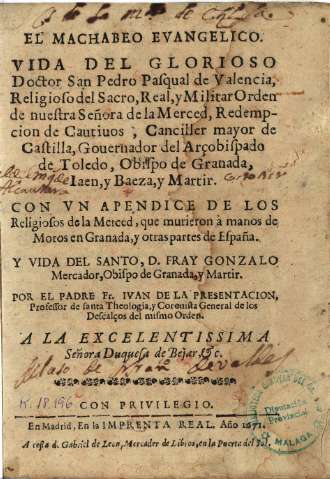 EL MACHABEO EVANGELICO.
VIDA DEL GLORIOSO
Doctor San Pedro Pasqual de Valencia,
Religioso del Sacro, Real, y Militar Orden
de nuestra Señora de la Merced, Redemp-
cion de Cautiuos, Canciller mayor de
Castilla, Governador del Arçobispado
de Toledo, Obispo de Granada,
Iaen, y Baeza, y Martir.
CON VN APENDICE DE LOS
Religiosos de la Merced, que murieron à manos de
Moros en Granada, y otras partes de España.
Y VIDA DEL SANTO, D. FRAY GONZALO
Mercador, Obispo de Granada, y Martir.
POR EL PADRE Fr. IVAN DE LA PRESENTACION,
Professor de santa Theologia, y Coronista General de los
Descalços del mismo Orden.
A LA EXCELENTISSIMA
Señora Duquesa de Bejar, &c.
K. 18. 196
CON PRIVILEGIO.
En Madrid, En la IMPRENTA REAL. Año 1671.
A costa d. Gabriel de Leon, Mercader de Libros, en la Puerta del Sol.
Diputación
Provincial
MALAGA